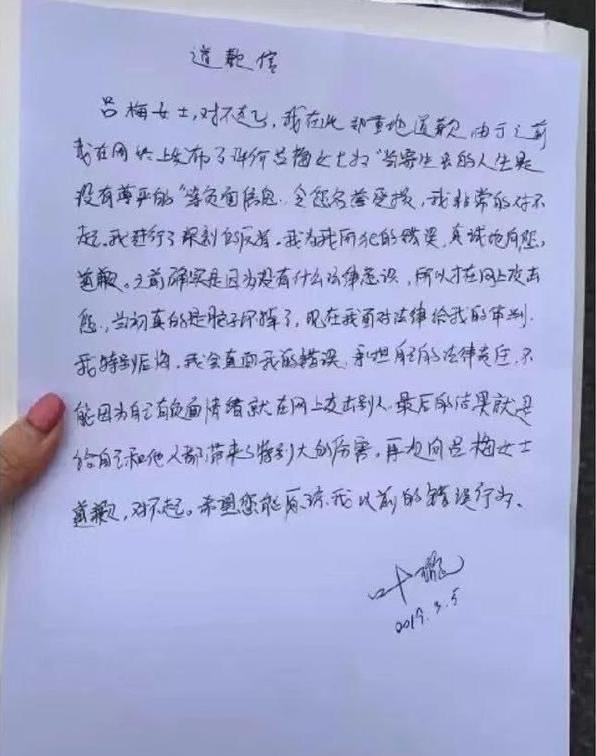 道歉信
吕梅女士，对不起，我在此郑重地道歉 由于之前
我在网络上发布了评价吕梅女士如"当寄生虫的人生是
没有尊严的"等负面信息．令您名誉受损，我非常的对不
起，我进行了深刻的反省。我为我所犯的错误，真诚地向您，
道歉。之前确实是因为没有什么法律意识，所以才在网上攻击
您，当初真的是脑子坏掉了，现在我面对法律给我的审判．
我特别后悔，我会直面我的错误，承担自己的法律责任，不
能因为自己有负面情绪就在网上攻击别人，最后的结果就是
给自己和他人都带来了特别大的厉害，再次向吕梅女士
道歉，对不起。希望您能原谅我以前的错误行为．
叶璇
2019.3.5